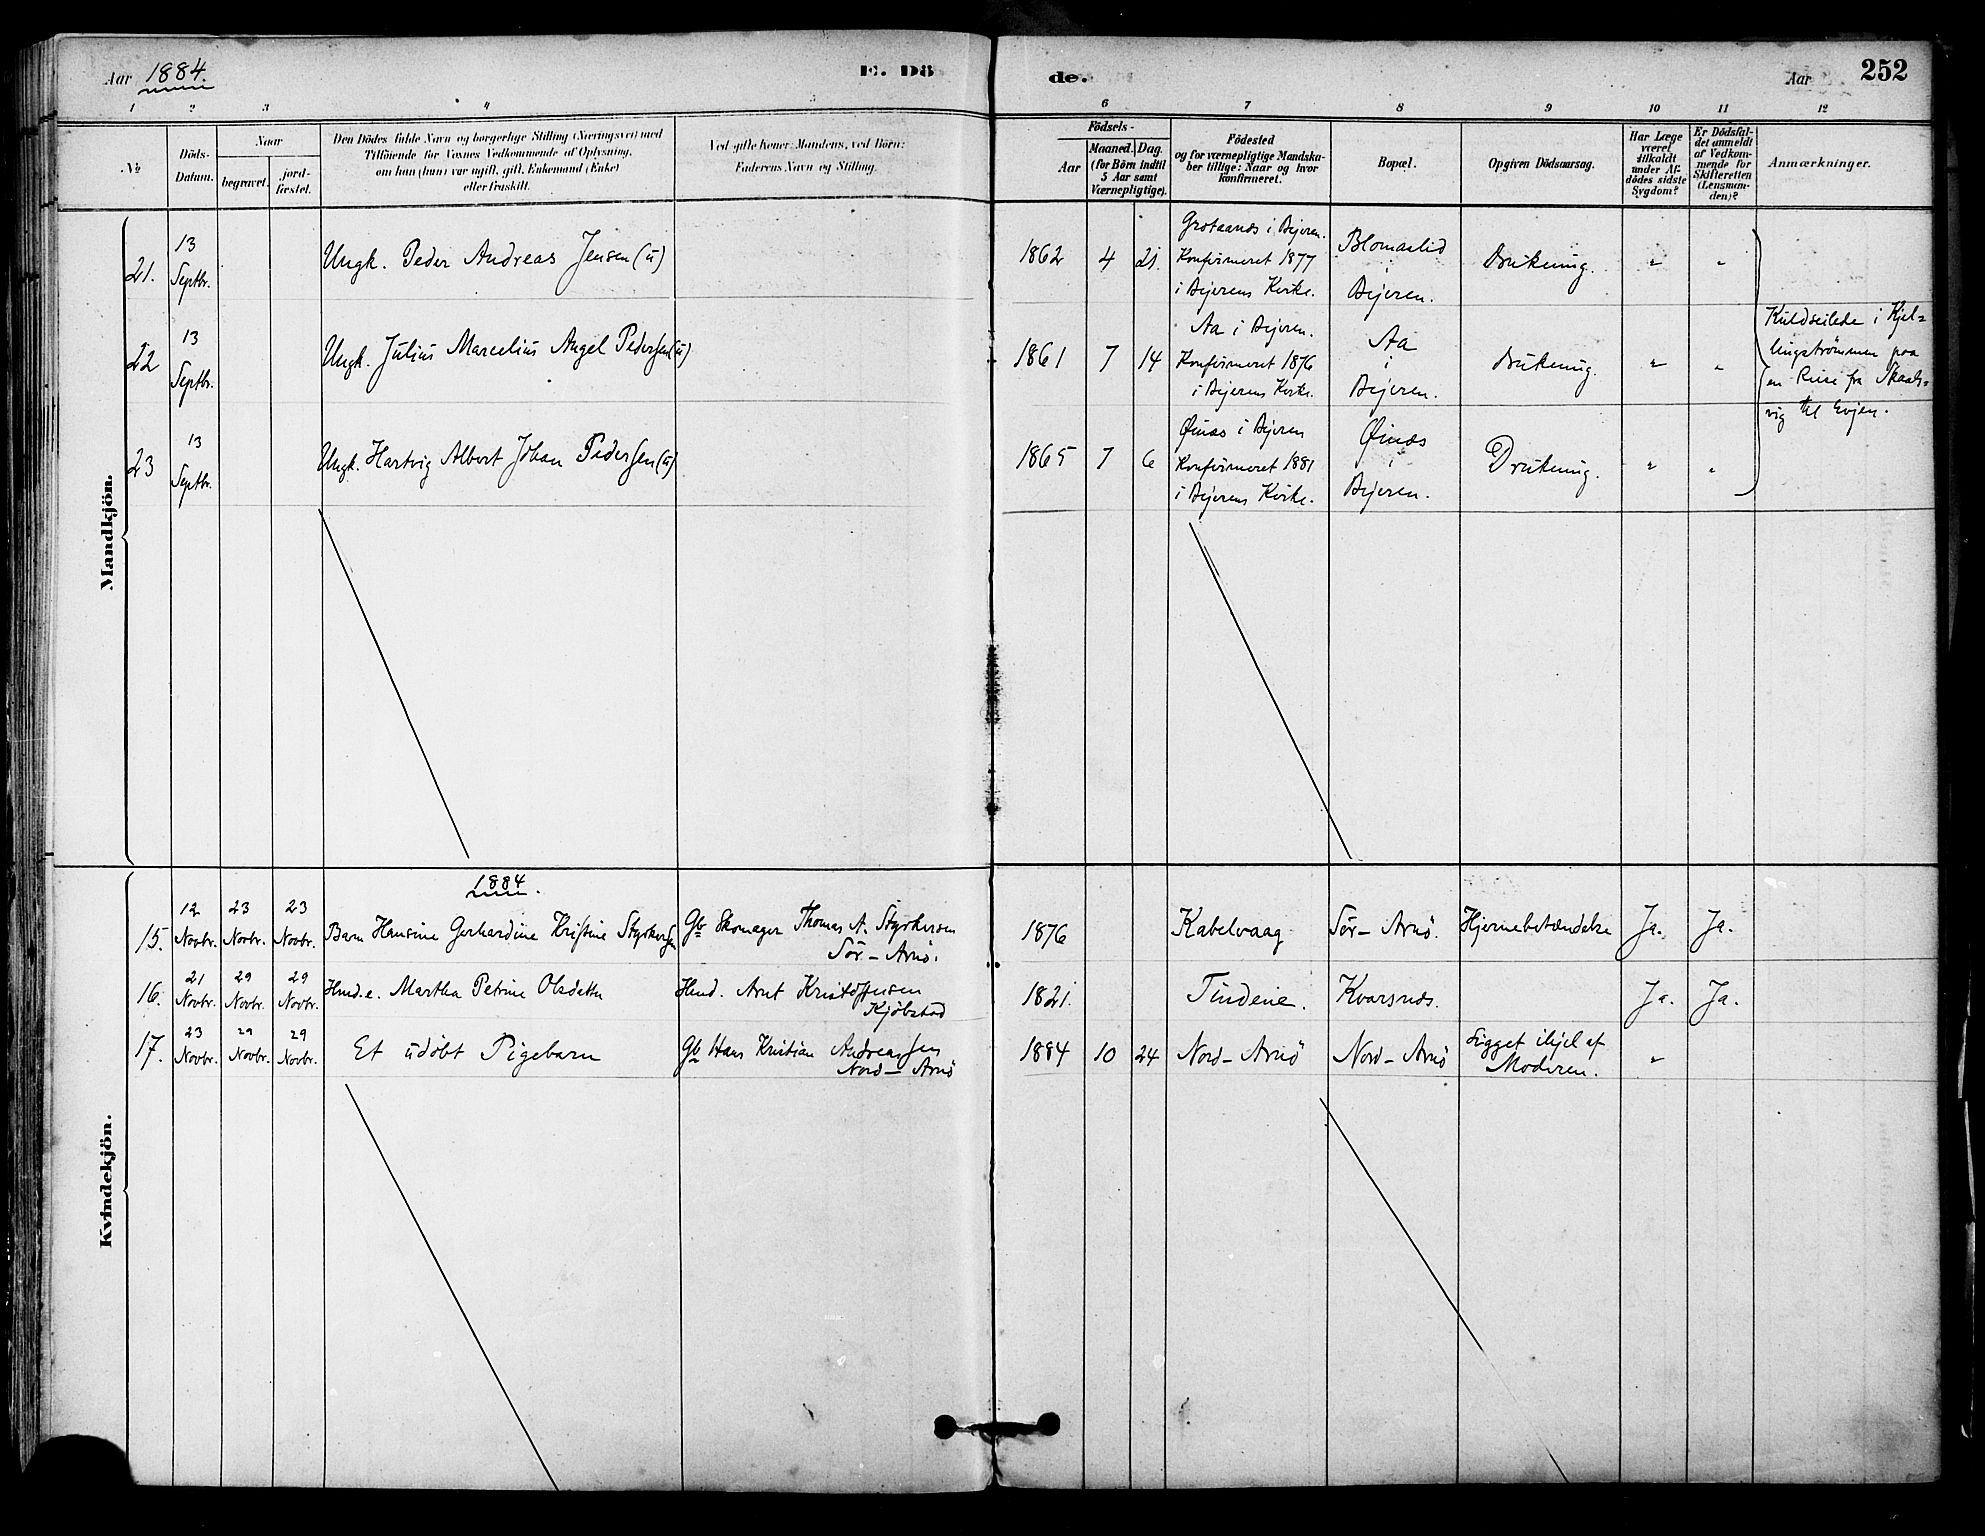 Aar 1884.
E. Dö
de.
Aar
252
1 2 3 4 5 6 7 8 9 10 11 12
No
Döds-
Datum.
Naar
begravet.
jord-
fæstet.
Den Dödes fulde Navn og borgerlige Stilling (Næringsvei) med
Tilföiende for Voxnes Vedkommende af Oplysning,
om han (hun) var ugift, gift, Enkemand (Enke)
eller fraskilt.
Ved gifte Koner: Mandens, ved Börn:
Faderens Navn og Stilling.
Födsels-
Aar
Maaned. Dag.
(for Börn indtil
5 Aar samt
Værnepligtige).
Födested
og for værnepligtige Mandska-
ber tillige: Naar og hvor
konfirmeret.
Bopæl.
Opgiven Dödsaarsag.
Har Læge
været
tilkaldt
under Af-
dödes sidste
Sygdom?
Er Dödsfal-
det anmeldt
af Vedkom-
mende for
Skifteretten
(Lensman-
den)?
Anmærkninger.
Mandkjön.
21.
13
Septbr.
Ungk. Peder Andreas Jensen (u)
1862 4 21.
i Bejeren.
Konfirmeret 1877
i Bejerens Kirke.
Blomarlid
i
Bejeren.
Drukning.
" "
22
13
Septbr.
Ungk. Julius Marcelius Angel Pedersen (u)
1861 7 14
Aa i Bejeren.
Konfirmeret 1876
i Bejerens Kirke.
Aa
i
Bejeren.
Drukning.
" "
Kuldseilede i Kjel-
lingströmmen paa
en Reise fra Skaals-
vig til Evjen.
23
13
Septbr.
Ungk. Hartvig Albert Johan Pedersen (u)
1865 7 6
Øinæs i Bejeren
Konfirmeret 1881
i Bejerens Kirke.
Øinæs
i
Bejeren.
Drukning.
" "
Kvindekjön.
1884.
15.
12 23 23
Novbr. Novbr. Novbr.
Barn Hansine Gerhardine Kristine Styrkersen
Gb Skomager Thomas A. Styrkersen
Sör-Arnö.
1876
Kabelvaag
Sör-Arnö.
Hjernebetændelse
Ja. Ja.
16.
21 29 29
Novbr. Novbr. Novbr.
Hmd.e. Martha Petrine Olsdatter
Hmd. Arnt Kristoffersen
Kjöbstad
1821.
Tindene.
Kvarsnæs.
Ja. Ja.
17.
23 29 29
Novbr. Novbr. Novbr.
Et udöbt Pigebarn
Gb Hans Kristian Andreassen
Nord-Arnö
1884 10 24
Nord-Arnö
Nord-Arnö
Ligget ihjel af
Moderen.
"